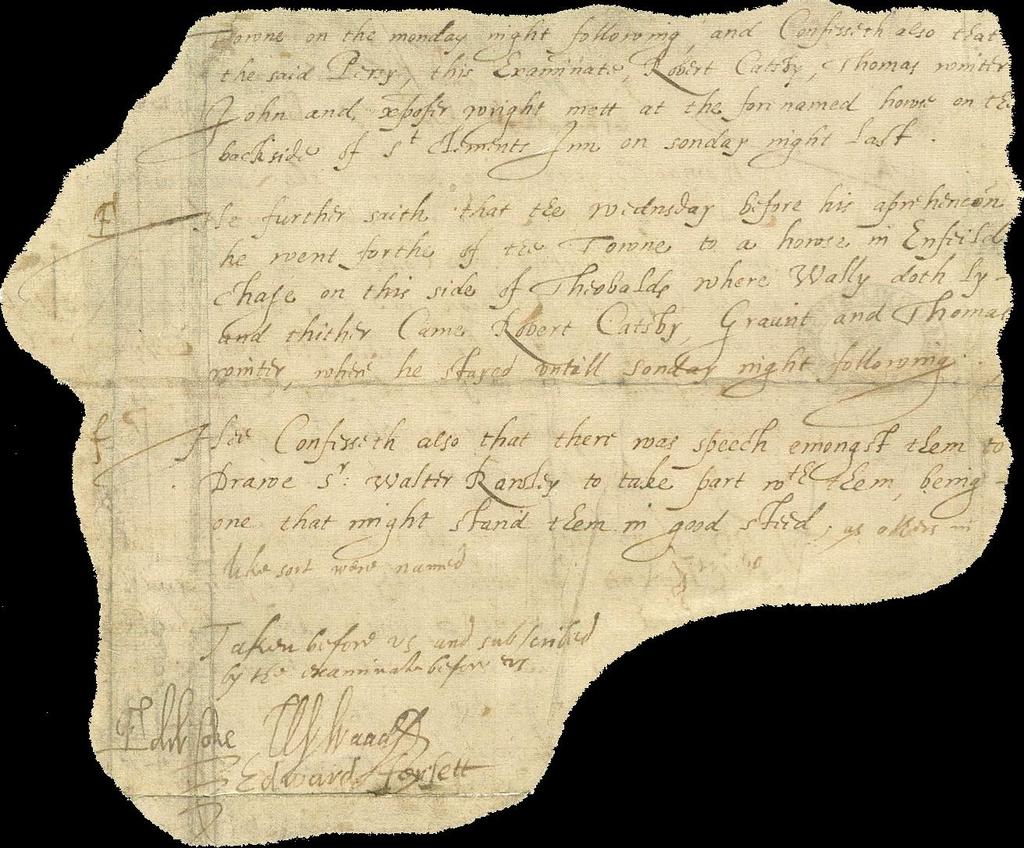 Towne on the monday night following, and Confesseth also that
the said Percy, this Examinate, Robert Catsby, Thomas winter
John and xpofer wright mett at the forenamed howse on the
backside of St Clements Inn on sonday night last.
F
He further saith that the wednsday before his aprehencon
he went forthe of the Towne to a howse in Enfeild
chase on this side of Theobalds where Wally doth ly
and thither Came Robert Catsby, Graunt and Thomas
winter, where he stayed untill sonday night following.
f
Hee Confesseth also that there was speech emongst them to
Drawe Sr: Walter Rawley to take part wth them, being
one that might stand them in good steed, as others in
like sort were named
Taken before us and subscribed
by the examinate before us
Edw Coke W Waad
Edward fforsett